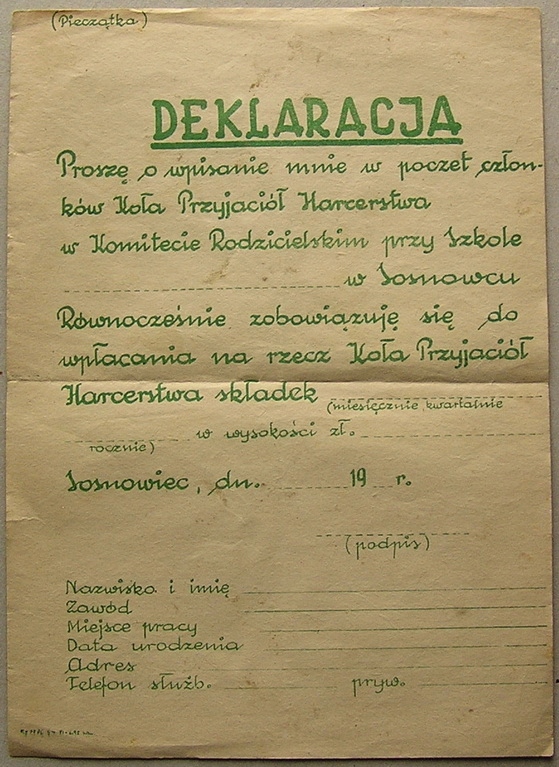 (Pieczątka)
DEKLARACJA
Proszę o wpisanie mnie w poczet człon-
ków Koła Przyjaciół Harcerstwa
w Komitecie Rodzicielskim przy Szkole
w Sosnowcu
Równocześnie zobowiązuję się do
wpłacania na rzecz Koła Przyjaciół
Harcerstwa składek
(miesięcznie, kwartalnie
w wysokości zł.
rocznie)
Sosnowiec, dn. 19 r.
(podpis)
Nazwisko i imię
Zawód
Miejsce pracy
Data urodzenia
Adres
Telefon służb. pryw.